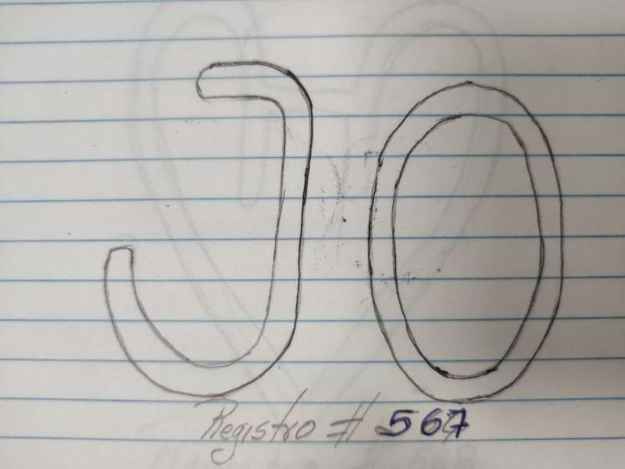 JO
Registro # 567